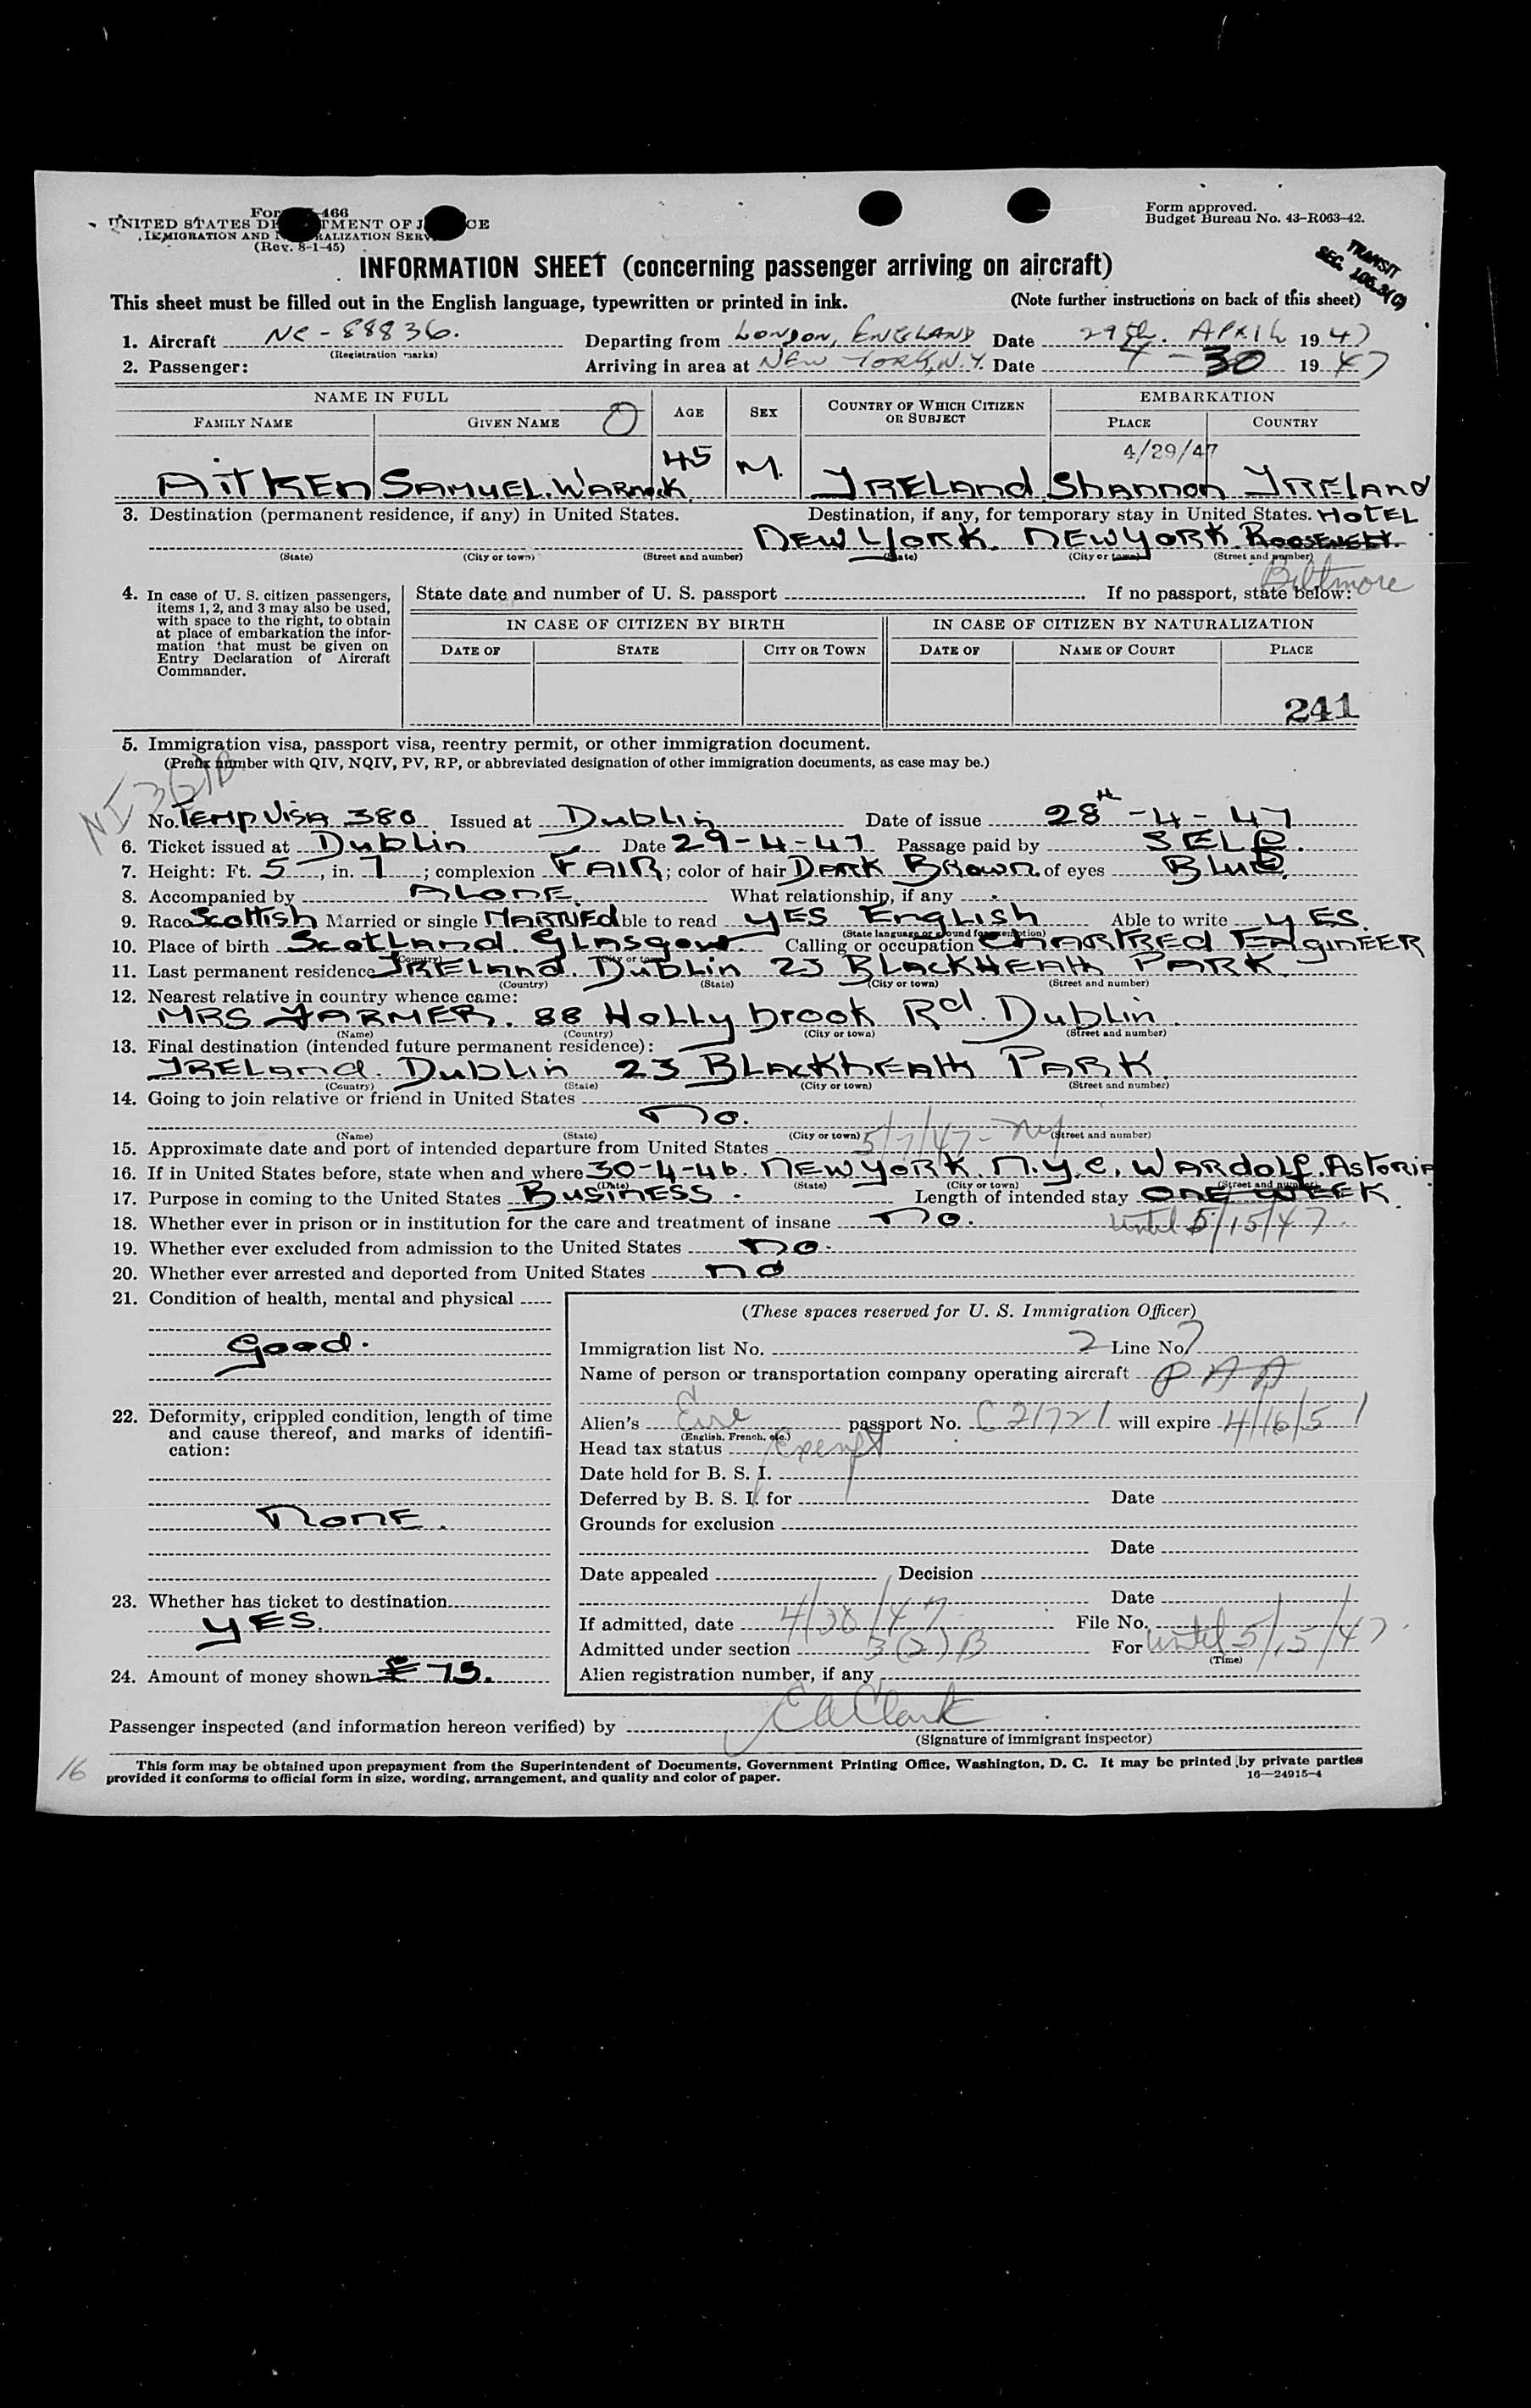 Form 466
UNITED STATES DEPARTMENT OF JUSTICE
IMMIGRATION AND NATURALIZATION SERVICE
(Rev. 8-1-45)
Form approved.
Budget Bureau No. 43-R063-42.
TRANSIT
SEC. 105.3(C)
INFORMATION SHEET (concerning passenger arriving on aircraft)
This sheet must be filled out in the English language, typewritten or printed in ink. (Note further instructions on back of this sheet)
1. Aircraft NC-88836. Departing from LONDON, ENGLAND Date 29th. APRIL 1947
(Registration marks)
2. Passenger: Arriving in area at NEW YORK, N.Y. Date 4-30 1947
NAME IN FULL AGE SEX COUNTRY OF WHICH CITIZEN OR SUBJECT EMBARKATION
FAMILY NAME GIVEN NAME PLACE COUNTRY
4/29/47
AITKEN SAMUEL. WARNOCK 45 M. IRELAND Shannon IRELAND
3. Destination (permanent residence, if any) in United States. Destination, if any, for temporary stay in United States. HOTEL
NEW YORK. NEW YORK. ROOSEVELT.
(State) (City or town) (Street and number) (State) (City or town) (Street and number)
Biltmore
4. In case of U. S. citizen passengers, items 1, 2, and 3 may also be used, with space to the right, to obtain at place of embarkation the information that must be given on Entry Declaration of Aircraft Commander.
State date and number of U. S. passport If no passport, state below:
IN CASE OF CITIZEN BY BIRTH IN CASE OF CITIZEN BY NATURALIZATION
DATE OF STATE CITY OR TOWN DATE OF NAME OF COURT PLACE
241
5. Immigration visa, passport visa, reentry permit, or other immigration document.
(Prefix number with QIV, NQIV, PV, RP, or abbreviated designation of other immigration documents, as case may be.)
No. TEMP VISA 380 Issued at Dublin Date of issue 28th-4-47
6. Ticket issued at Dublin Date 29-4-47 Passage paid by SELF.
7. Height: Ft. 5, in. 7; complexion FAIR; color of hair DARK BROWN of eyes BLUE.
8. Accompanied by ALONE. What relationship, if any
9. Race Scottish Married or single MARRIED Able to read YES English Able to write YES.
(State language or ground for exemption)
10. Place of birth SCOTLAND. GLASGOW Calling or occupation CHARTRED ENGINEER
(Country) (City or town)
11. Last permanent residence IRELAND. DUBLIN 23 BLACKHEATH PARK.
(Country) (State) (City or town) (Street and number)
12. Nearest relative in country whence came:
MRS FARMER. 88 Hollybrook Rd. Dublin.
(Name) (Country) (City or town) (Street and number)
13. Final destination (intended future permanent residence):
IRELAND. DUBLIN 23 BLACKHEATH PARK.
(Country) (State) (City or town) (Street and number)
14. Going to join relative or friend in United States
NO.
(Name) (State) (City or town) (Street and number)
15. Approximate date and port of intended departure from United States 5/7/47 - NY
16. If in United States before, state when and where 30-4-46. NEW YORK N.Y.C. WARDOLF. ASTORIA
(Date) (State) (City or town) (Street and number)
17. Purpose in coming to the United States BUSINESS. Length of intended stay ONE WEEK.
18. Whether ever in prison or in institution for the care and treatment of insane NO. until 5/15/47
19. Whether ever excluded from admission to the United States NO.
20. Whether ever arrested and deported from United States NO
21. Condition of health, mental and physical
Good.
22. Deformity, crippled condition, length of time and cause thereof, and marks of identification:
NONE.
23. Whether has ticket to destination
YES.
24. Amount of money shown £ 75.
(These spaces reserved for U. S. Immigration Officer)
Immigration list No. 2 Line No. 7
Name of person or transportation company operating aircraft PAA
Alien's Eire passport No. C21721 will expire 4/16/51
(English, French, etc.)
Head tax status Exempt
Date held for B. S. I.
Deferred by B. S. I. for Date
Grounds for exclusion
Date
Date appealed Decision
Date
If admitted, date 4/30/47 File No.
Admitted under section 3(2)B For until 5/15/47
(Time)
Alien registration number, if any
Passenger inspected (and information hereon verified) by E A Clark
(Signature of immigrant inspector)
16
This form may be obtained upon prepayment from the Superintendent of Documents, Government Printing Office, Washington, D. C. It may be printed by private parties
provided it conforms to official form in size, wording, arrangement, and quality and color of paper. 16—24915-4